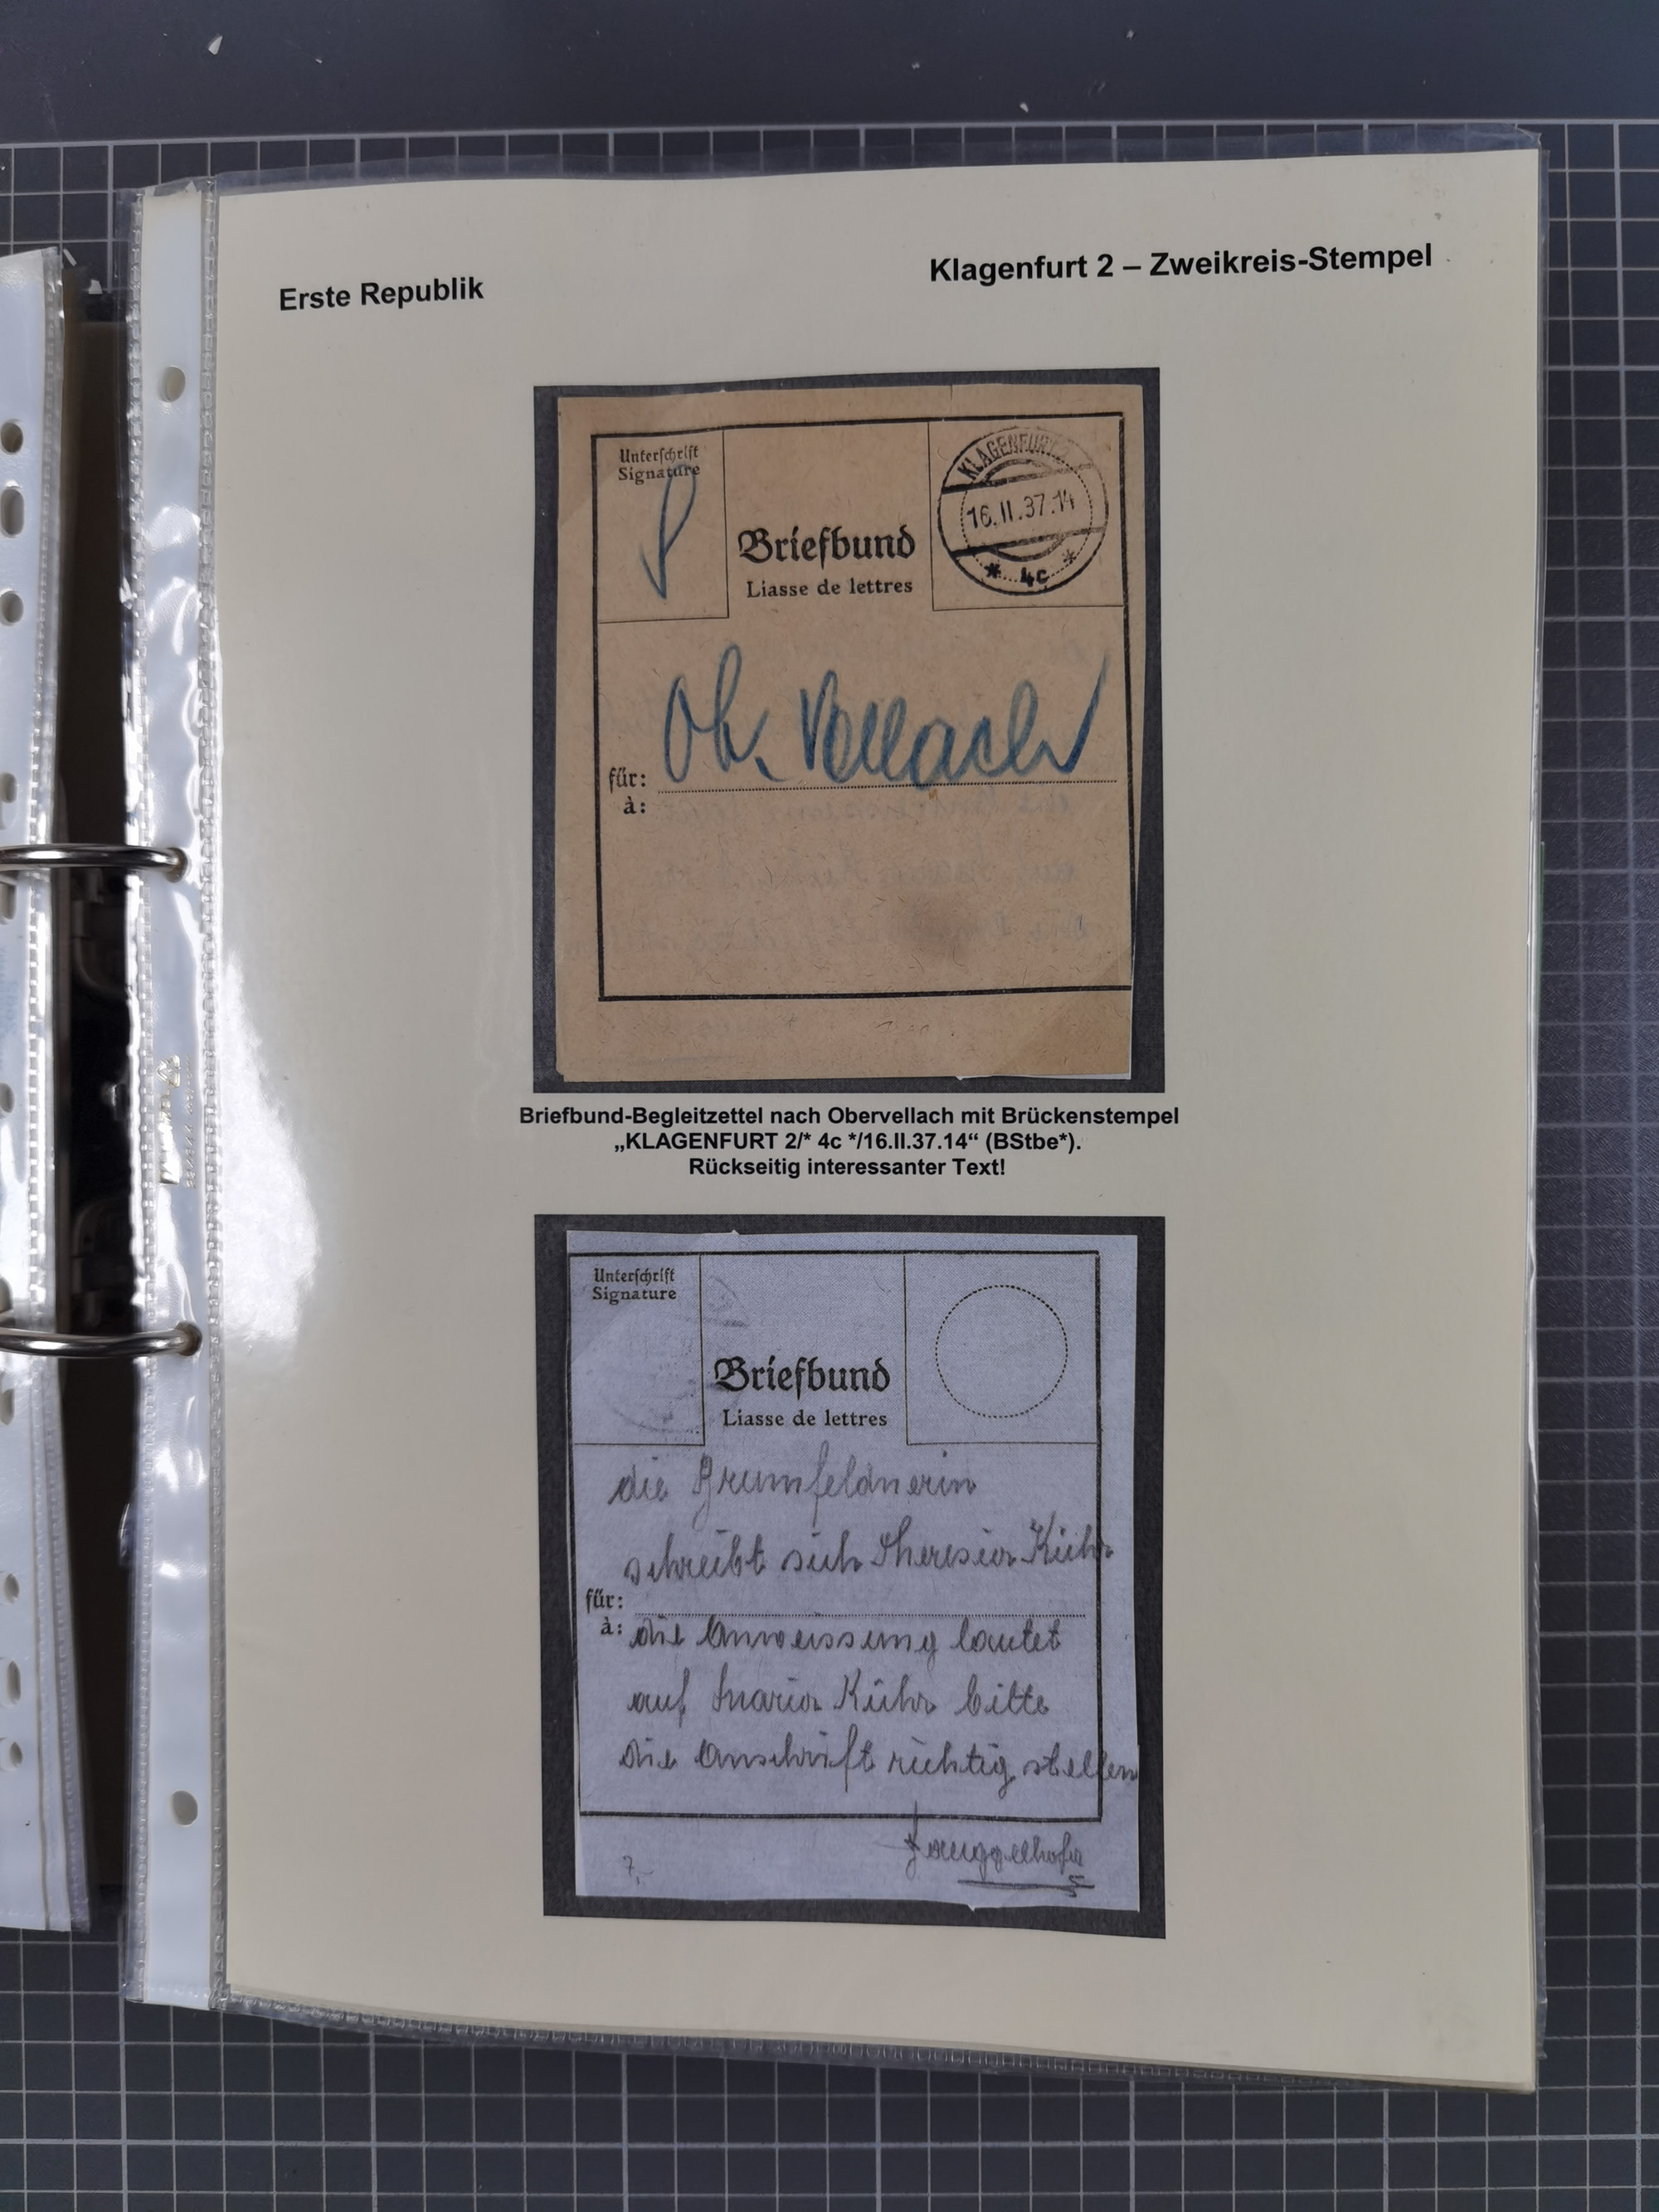 Erste Republik
Klagenfurt 2 – Zweikreis-Stempel
Unterschrift
Signature
KLAGENFURT 2
16.II.37.14
* 4c *
Briefbund
Liasse de lettres
Ob. Vellach
für:
à:
Briefbund-Begleitzettel nach Obervellach mit Brückenstempel
„KLAGENFURT 2/* 4c */16.II.37.14“ (BStbe*).
Rückseitig interessanter Text!
Unterschrift
Signature
Briefbund
Liasse de lettres
die
schreibt sich Theresia Kühr
für:
à: die Anweissung lautet
auf Maria Kühr bitte
die Anschrift richtig stellen
7,-